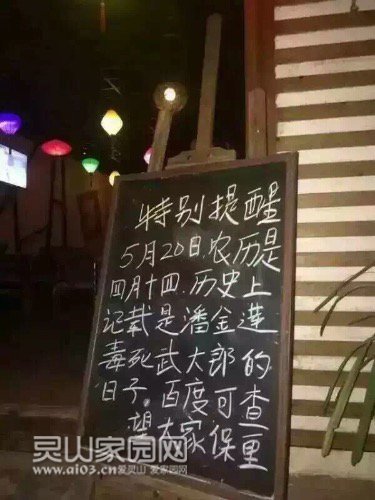 特别提醒
5月20日.农历是
四月十四.历史上
记载是潘金莲
毒死武大郎的
日子.百度可查
望大家保重
灵山家园网
www.ai03.cn爱灵山 爱家园网